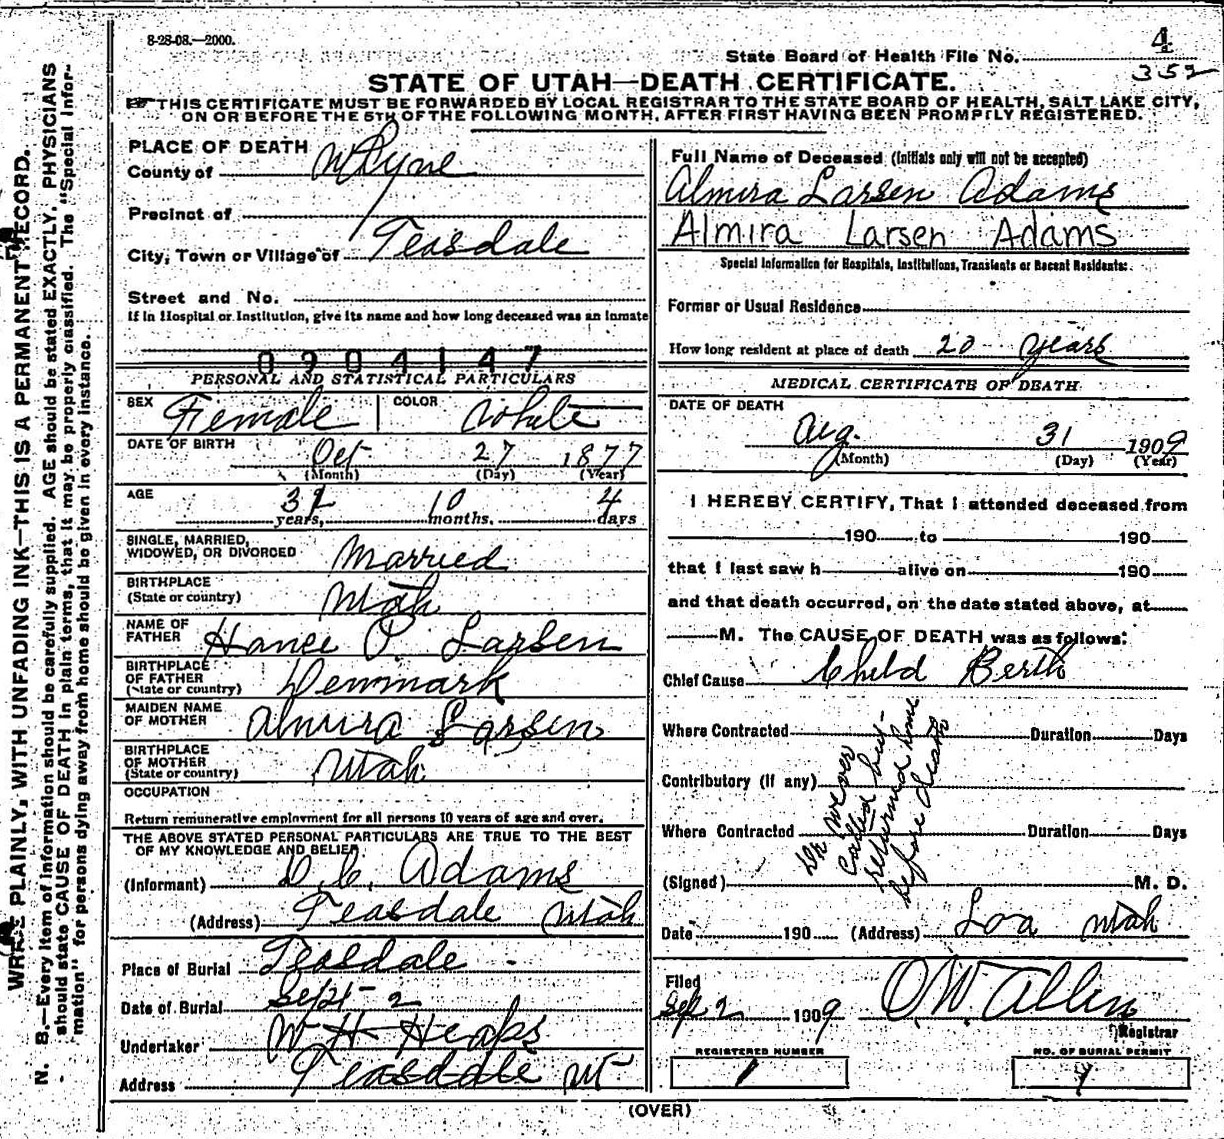 8-28-08.—2000.
State Board of Health File No. 4
352
STATE OF UTAH—DEATH CERTIFICATE.
☞ THIS CERTIFICATE MUST BE FORWARDED BY LOCAL REGISTRAR TO THE STATE BOARD OF HEALTH, SALT LAKE CITY,
ON OR BEFORE THE 5TH OF THE FOLLOWING MONTH, AFTER FIRST HAVING BEEN PROMPTLY REGISTERED.
WRITE PLAINLY, WITH UNFADING INK—THIS IS A PERMANENT RECORD.
N. B.—Every item of information should be carefully supplied. AGE should be stated EXACTLY. PHYSICIANS
should state CAUSE OF DEATH in plain terms, that it may be properly classified. The "Special Infor-
mation" for persons dying away from home should be given in every instance.
PLACE OF DEATH
County of Wayne
Precinct of
City, Town or Village of Teasdale
Street and No.
If in Hospital or Institution, give its name and how long deceased was an inmate
0904147
PERSONAL AND STATISTICAL PARTICULARS
SEX Female COLOR White
DATE OF BIRTH Oct 27 1877
(Month) (Day) (Year)
AGE 31 years, 10 months, 4 days
SINGLE, MARRIED,
WIDOWED, OR DIVORCED Married
BIRTHPLACE
(State or country) Utah
NAME OF
FATHER Hance P. Larsen
BIRTHPLACE
OF FATHER
(State or country) Denmark
MAIDEN NAME
OF MOTHER Almira Larsen
BIRTHPLACE
OF MOTHER
(State or country) Utah
OCCUPATION
Return remunerative employment for all persons 10 years of age and over.
THE ABOVE STATED PERSONAL PARTICULARS ARE TRUE TO THE BEST
OF MY KNOWLEDGE AND BELIEF
(Informant) D. C. Adams
(Address) Teasdale Utah
Place of Burial Teasdale
Date of Burial Sept 2
Undertaker W H Heaps
Address Teasdale UT
Full Name of Deceased (Initials only will not be accepted)
Almira Larsen Adams
Almira Larsen Adams
Special Information for Hospitals, Institutions, Transients or Recent Residents:
Former or Usual Residence
How long resident at place of death 20 years
MEDICAL CERTIFICATE OF DEATH
DATE OF DEATH
Aug. 31 1909
(Month) (Day) (Year)
I HEREBY CERTIFY, That I attended deceased from
190 to 190
that I last saw h alive on 190
and that death occurred, on the date stated above, at
M. The CAUSE OF DEATH was as follows:
Chief Cause Child Berth
Where Contracted Duration Days
Contributory (if any)
Where Contracted Duration Days
Dr Wever
called but
returned home
before death
(Signed) M. D.
Date 190 (Address) Loa Utah
Filed
Sep 2 1909 O. W. Allen
Registrar
REGISTERED NUMBER
1
NO. OF BURIAL PERMIT
(OVER)